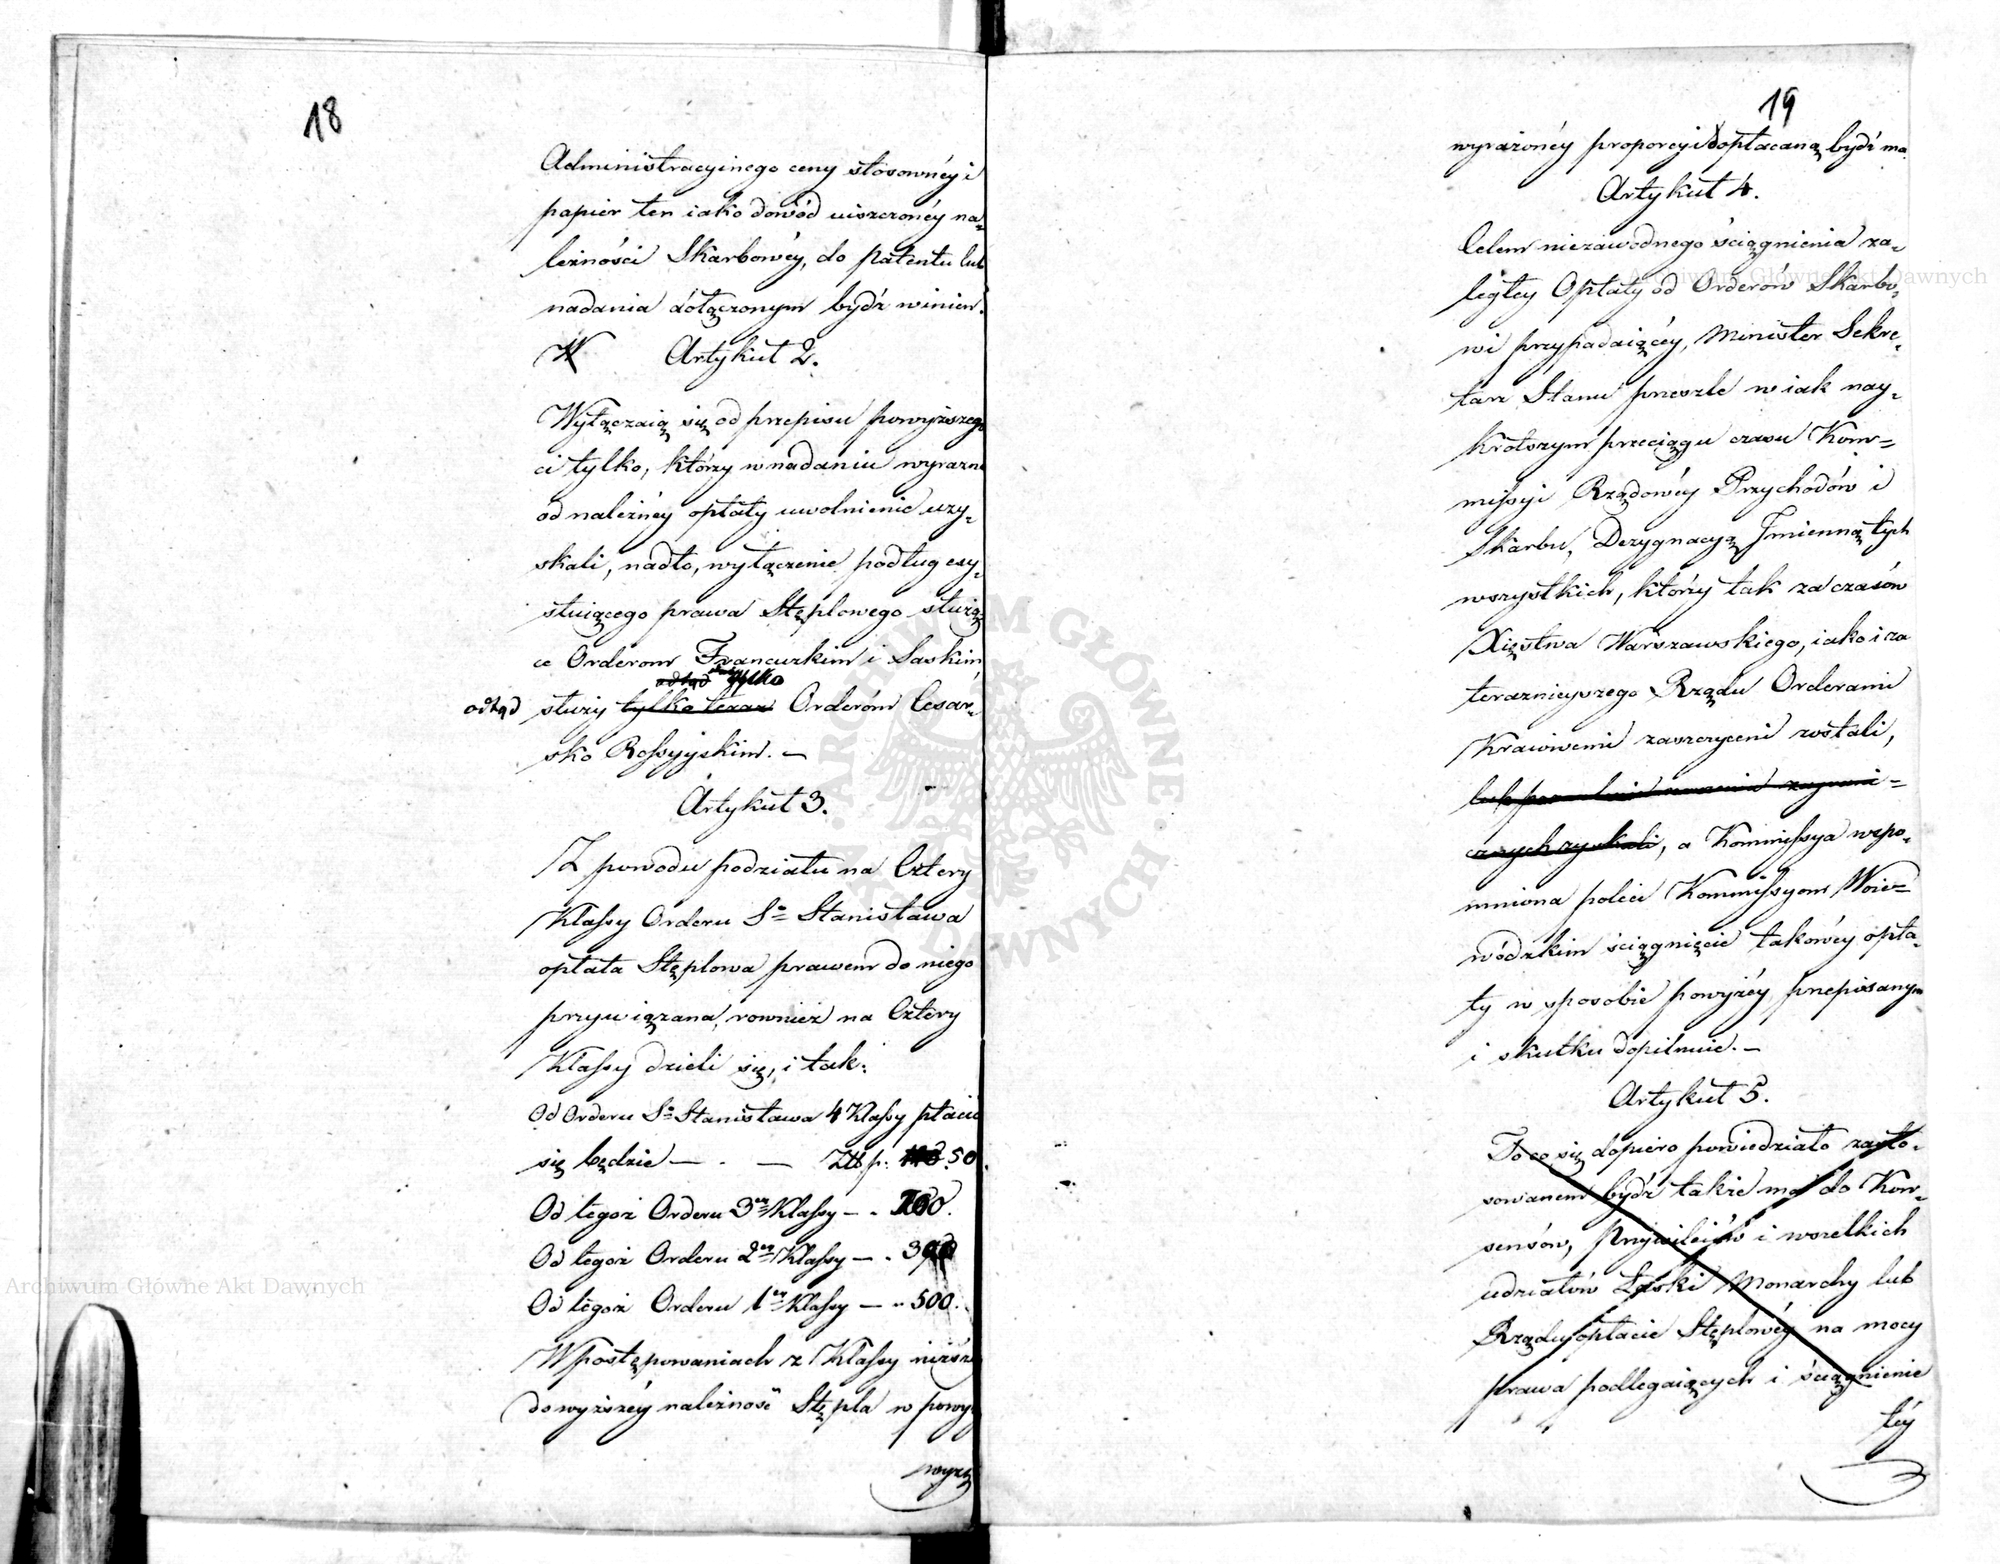 18
Administracyinego ceny stosownéy i
papier ten iako dowód uiszczonéy na„
leżności Skarbowéy, do patentu lub
nadania dołączonym bydź winien.
Artykuł 2.
Wyłączaią się od przepisu powyższego
ci tylko, którzy w nadaniu wyraźne
od należnéy opłaty uwolnienie uzy„
skali, nadto, wyłączenie podług exy„
stuiącego prawa Stęplowego służą„
ce Orderom Francuzkim i Saskim
odtąd tylko
odtąd służy tylko teraz Orderóm Cesar„
sko Rossyyskim. —
Artykuł 3.
Z powodu podziału na Cztery
Klassy Orderu Sgo Stanisława
opłata Stęplowa prawem do niego
przywiązana, rownież na Cztery
Klassy dzieli się, i tak:
Od Orderu Sgo Stanisława 4 Klassy płacić
się będzie — . — Złł. p. 50.
Od tegoż Orderu 3ey Klassy — .
Od tegoż Orderu 2ey Klassy — .
Od tegoż Orderu 1ey Klassy — „ 500.
W postępowaniach z Klassy niższéy
do wyższéy należność Stępla w powy
wyrażo
19
wyrażonéy proporcyi dopłacaną bydź ma.
Artykuł 4.
Celem niezawodnego ściągnienia za„
ległey Opłaty od Orderów Skarbo„
wi przypadaiącéy, Minister Sekre„
tarz Stanu prześle w iak nay„
krótszym przeciągu czasu Kom=
missyi Rządowéy Przychodów i
Skarbu, Dezygnacyą Jmienną tych
wszystkich, którzy tak za czasów
Xięstwa Warszawskiego, iako i za
teraznieyszego Rządu Orderami
Kraiowemi zaszczyceni zostali,
lub zagrani=
cznych zyskali, a Kommissya wspo„
mniona poleci Kommissyom Woie=
wódzkim ściągnięcie takowéy opła„
ty w sposobie powyżéy przepisanym
i skutku dopilnuie. —
Artykuł 5.
To co się dopiero powiedziało zasto„
sowanem bydź także ma do Kon„
sensów, Przywileiów i wszelkich
udziałów Łaski Monarchy lub
Rządu opłacie Stęplowéy na mocy
prawa podlegaiących i ściągnienie
téy
Archiwum Główne Akt Dawnych
Archiwum Główne Akt Dawnych
ARCHIWUM GŁÓWNE AKT DAWNYCH